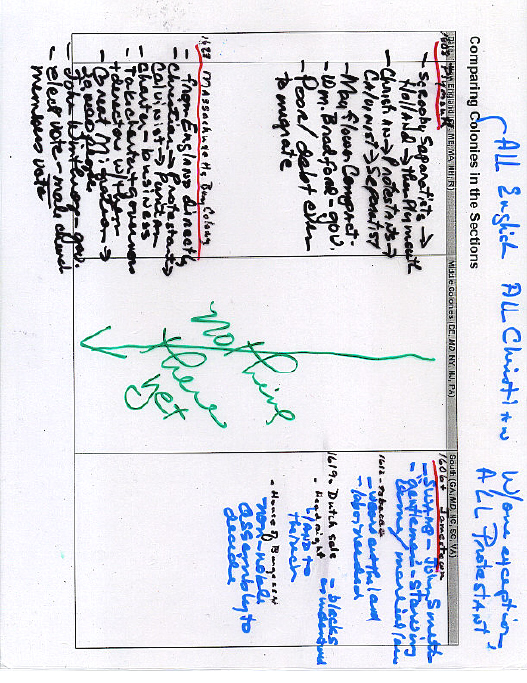 Comparing Colonies in the Sections
ALL English ALL Christian w/one exception ALL PROTESTANT
New England (ME, MA, NH, RI)
1608 Plymouth
- Scrooby Separatists →
Holland → then Plymouth
- Christian → Protestants →
Calvinist → Separatist
- Mayflower Compact
- Wm. Bradford - gov.
- Poor/debt
to migrate
Massachusetts Bay Colony
- from England directly
- Christian → Protestant →
Calvinist → Puritan
- Charter - business
- Take charter + governor
+ directors w/them
- Great Migration →
people
- John Winthrop - gov.
- elect vote - male church
members vote
Middle Colonies (DE, MD, NY, NJ, PA)
nothing
there
yet
South (GA, MD, NC, SC, VA)
Jamestown
- John Smith
- "gentlemen" - starving
1612 - tobacco
- labor needed
1619 - Dutch sale - blacks
- Headright
land to
the rich
- House of Burgesses
assembly to
decide